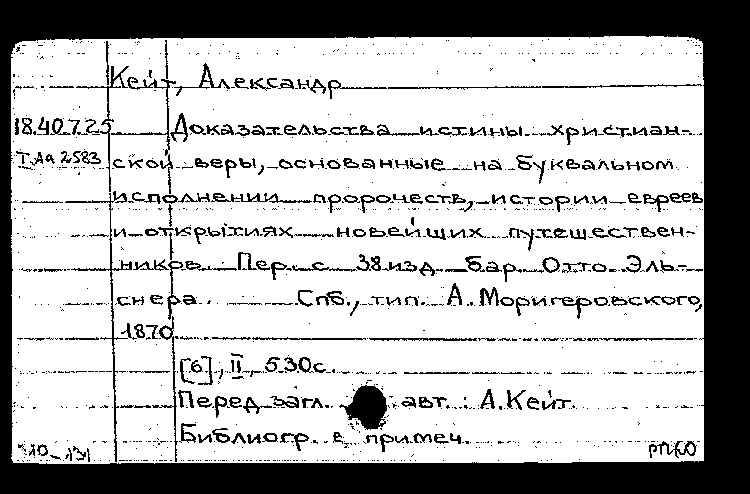 Кейт, Александр
18.40.7.25 Доказательства истины христиан-
Т Аа 2583 ской веры, основанные на буквальном
исполнении пророчеств, истории евреев
и открытиях новейших путешествен-
ников. Пер. с 38 изд. бар. Отто Эль-
снера. Спб., тип. А. Моригеровского,
1870
[6], II, 530с.
Перед загл. авт.: А. Кейт.
Библиогр. в примеч.
10-131